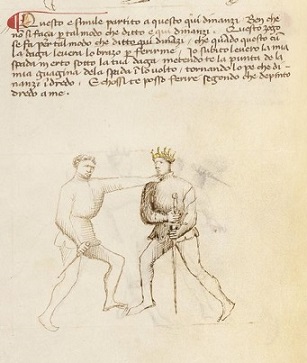 Questo e simile partito a questo qui dinanzi. Ben che
no si faça p tal modo che ditto e qui dinanzi. Questo zogo
se fa p tal modo che ditto qui dinãzi, che quãdo questo cũ
la daga leuera lo brazo p ferirme. Io subito leuero la mia
spada in erto sotto la tua daga metendo te la punta de la
mia guagina dela spada ĩ lo uolto, tornando lo pe che di-
nanzi ĩdredo. E chossi te posso ferire segondo che depinto
dredo a me.